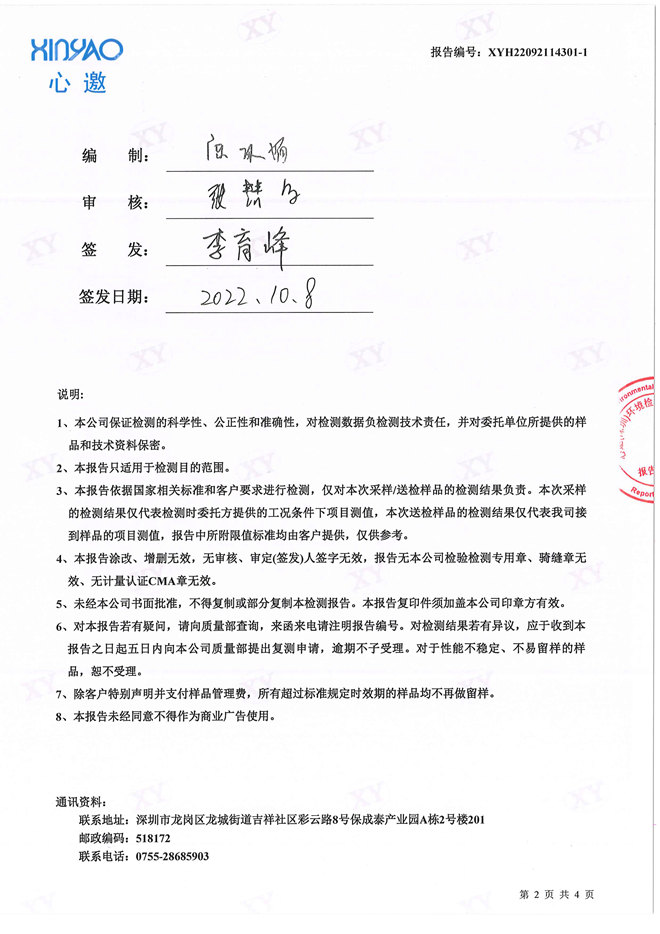 XINYAO
心邀
报告编号：XYH22092114301-1
编 制：
审 核：
签 发：李育峰
签发日期：2022.10.8
说明：
1、本公司保证检测的科学性、公正性和准确性，对检测数据负检测技术责任，并对委托单位所提供的样
品和技术资料保密。
2、本报告只适用于检测目的范围。
3、本报告依据国家相关标准和客户要求进行检测，仅对本次采样/送检样品的检测结果负责。本次采样
的检测结果仅代表检测时委托方提供的工况条件下项目测值，本次送检样品的检测结果仅代表我司接
到样品的项目测值，报告中所附限值标准均由客户提供，仅供参考。
4、本报告涂改、增删无效，无审核、审定(签发)人签字无效，报告无本公司检验检测专用章、骑缝章无
效、无计量认证CMA章无效。
5、未经本公司书面批准，不得复制或部分复制本检测报告。本报告复印件须加盖本公司印章方有效。
6、对本报告若有疑问，请向质量部查询，来函来电请注明报告编号。对检测结果若有异议，应于收到本
报告之日起五日内向本公司质量部提出复测申请，逾期不予受理。对于性能不稳定、不易留样的样
品，恕不受理。
7、除客户特别声明并支付样品管理费，所有超过标准规定时效期的样品均不再做留样。
8、本报告未经同意不得作为商业广告使用。
环境检
报告
Report
通讯资料：
联系地址：深圳市龙岗区龙城街道吉祥社区彩云路8号保成泰产业园A栋2号楼201
邮政编码：518172
联系电话：0755-28685903
第 2 页 共 4 页